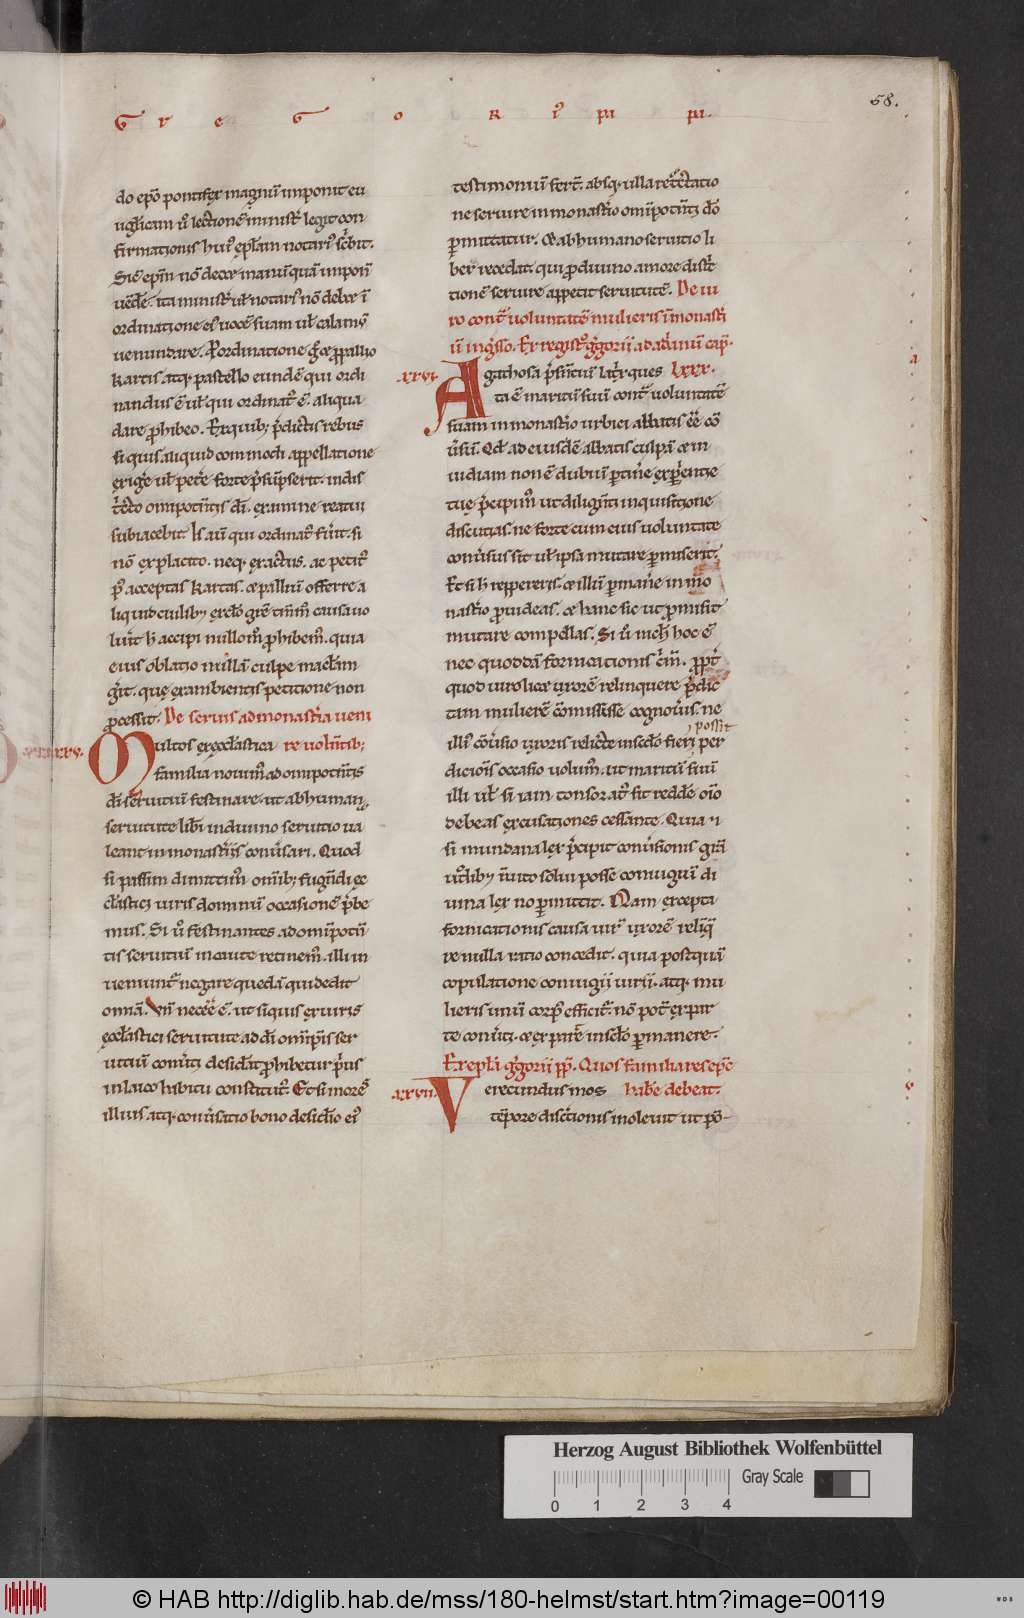 58.
GREGORIꝰ PA PA.
do ep̄o pontifex magnū imponit eu
ugl̄icam ū lectionē ministr̄ legit con
firmationis huiꝰ ep̄lam notariꝰ sc̄bit.
Sic̄ ep̄m nō decet manū quā imponit
uēde. ita minist̄ ul̄ notariꝰ nō debet ī
ordinatione eiꝰ uocē suam ul̄ calamū
uenundare. Pro ordinatione ḡ et p̄ pallio
kartis atq; pastello eundē qui ordi
nandus ē ul̄ qui ordinat̄ ē. aliqua
dare prohibeo. Ex quib; p̄dictis rebus
si quis aliquid commodi appellatione
exiḡe ul̄ pet̄e forte p̄sūpserit. in dis
t̄cto om̄ipotētis dī. examine reatui
subiacebit. Is aū qui ordinat̄ fūit. si
nō ex placito. neq; exactus. ac petit̄
p̄ acceptas kartas. et palliū offerre a
liquid cuilib; ex clo grē tm̄m̄ causa uo
luīt h̄ accipi nullom̄ prohibem̄. quia
eius oblatio nullā culpe maclam
ḡit. que ex ambientis petitione non
processit. De seruis ad monast̄ia ueni
xxv. Multos ex eccl̄astica re uolētib;
familia nouim̄ ad omipotētis
dī seruitiū festinare. ut ab humana
seruitute libī in diuino seruitio ua
leant in monast̄iis conūsari. Quod
si passim dimittim̄ omib; fugiēdi ec
cl̄astici iuris dominiū occasionē p̄be
mus. Si ū festinantes ad omipotē
tis seruitiū incaute retinem̄. illi in
uenimur̄ negare quedā qui dedit
omnia. Vn̄ necēe ē. ut si quis ex iuris
eccl̄astici seruitute ad dī omīp̄tis ser
uitiū conūti desidāt probetur p̄us
in laico habitu constitut̄. Et si morē
illius. atq; conūsatio bono desidio eiꝰ
testimoniū fert̄. absq; ulla retctatio
ne seruire in monast̄io omīpotētj dō
p̄mittatur. et ab humano seruitio li
ber recedat. qui p̄ diuino amore dist̄
tionē seruire appetit seruitutē. De ui
ro cont̄ uoluntatē mulieris ī monast̄i
ū ingsso. Ex regist̄ ḡgorii ad adriuū cap̄.
xxvi. Agathosa p̄sētiū lat̄x ques lxxx.
ta ē maritū suū cont̄ uoluntatē
suam in monast̄io urbici abbatis ēe cō
ūsū. Qd̄ ad eiusdē abbatis culpā et in
uidiam non ē dubiū p̄tinē experientie
tue p̄cipim̄ ut diligēti inquisitione
discutias. ne forte cum eius uoluntate
conūsus sit ul̄ ipsa mutare p̄miserit.
Et si h reppereris. et illū p̄manē in mo
nast̄io prouideas. et hanc sic ut promisit
mutare compellas. Si ū nich̄ hoc ē
nec quoddā fornicationis c̄im̄. propt̄
quod uiro licet uxorē relinquere p̄dic
tam mulierē cōmisisse cognouis. ne
illiꝰ cōūsio uxoris relicte in seclo fieri possit per
dicionis occasio uolum̄. ut maritū suū
illi ul̄ si iam tonsorat̄ sit reddē omio
debeas excusationes cessante. Quia n̄
si mundana lex p̄cipit conūsionis grā
ut̄lib; īuito solui posse coniugiū di
uina lex nō p̄mittit. Nam excepta
fornicationis causa uir̄ uxorē relīq̄
re nulla ratio concedit. quia postquā
copulatione coniugii uirī. atq; mu
lieris unū corpꝰ efficit̄. nō pot̄ ex par
te conūti. et ex parte in sēclo p̄manere.
Ex epl̄a ḡgorii pp̄. Quos familiares ep̄c
xxvii. Verecundus mos habē debeat.
tēpore discitionis inoleuit ut pō-
Herzog August Bibliothek Wolfenbüttel
Gray Scale
0 1 2 3 4
© HAB http://diglib.hab.de/mss/180-helmst/start.htm?image=00119